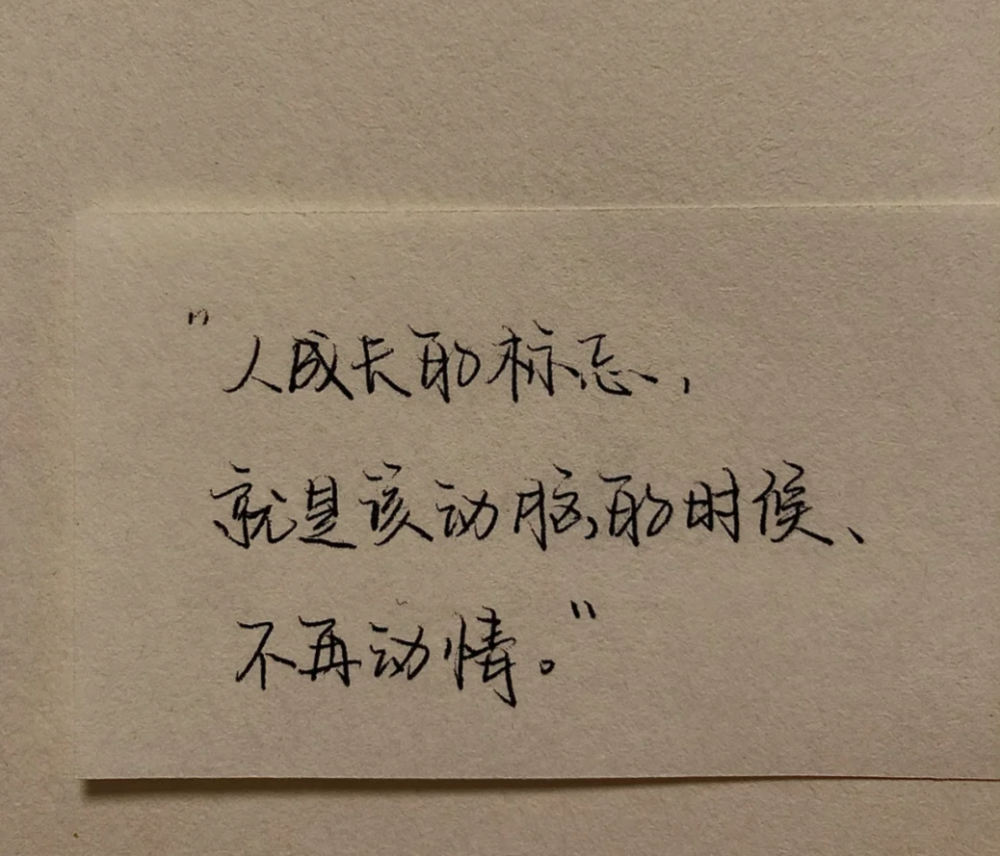 "人成长的标志,
就是该动脑的时候、
不再动情。"